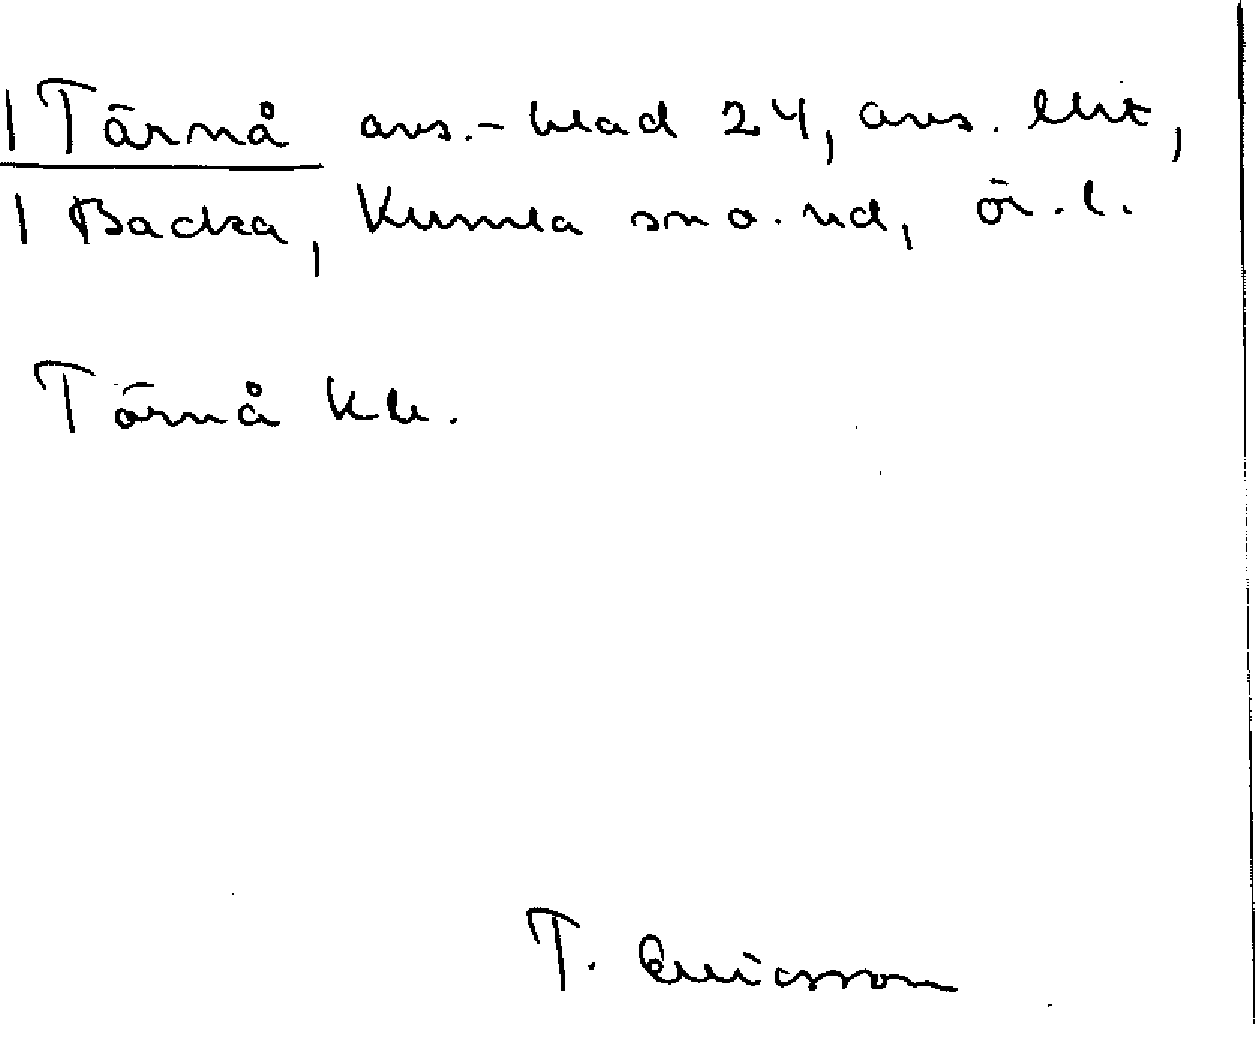 | Tärnå avs.-blad 24, avs. lht,
| Backa, Kumla sn o. hd, ö.l.
Tärnå Kle.
T. Ericsson